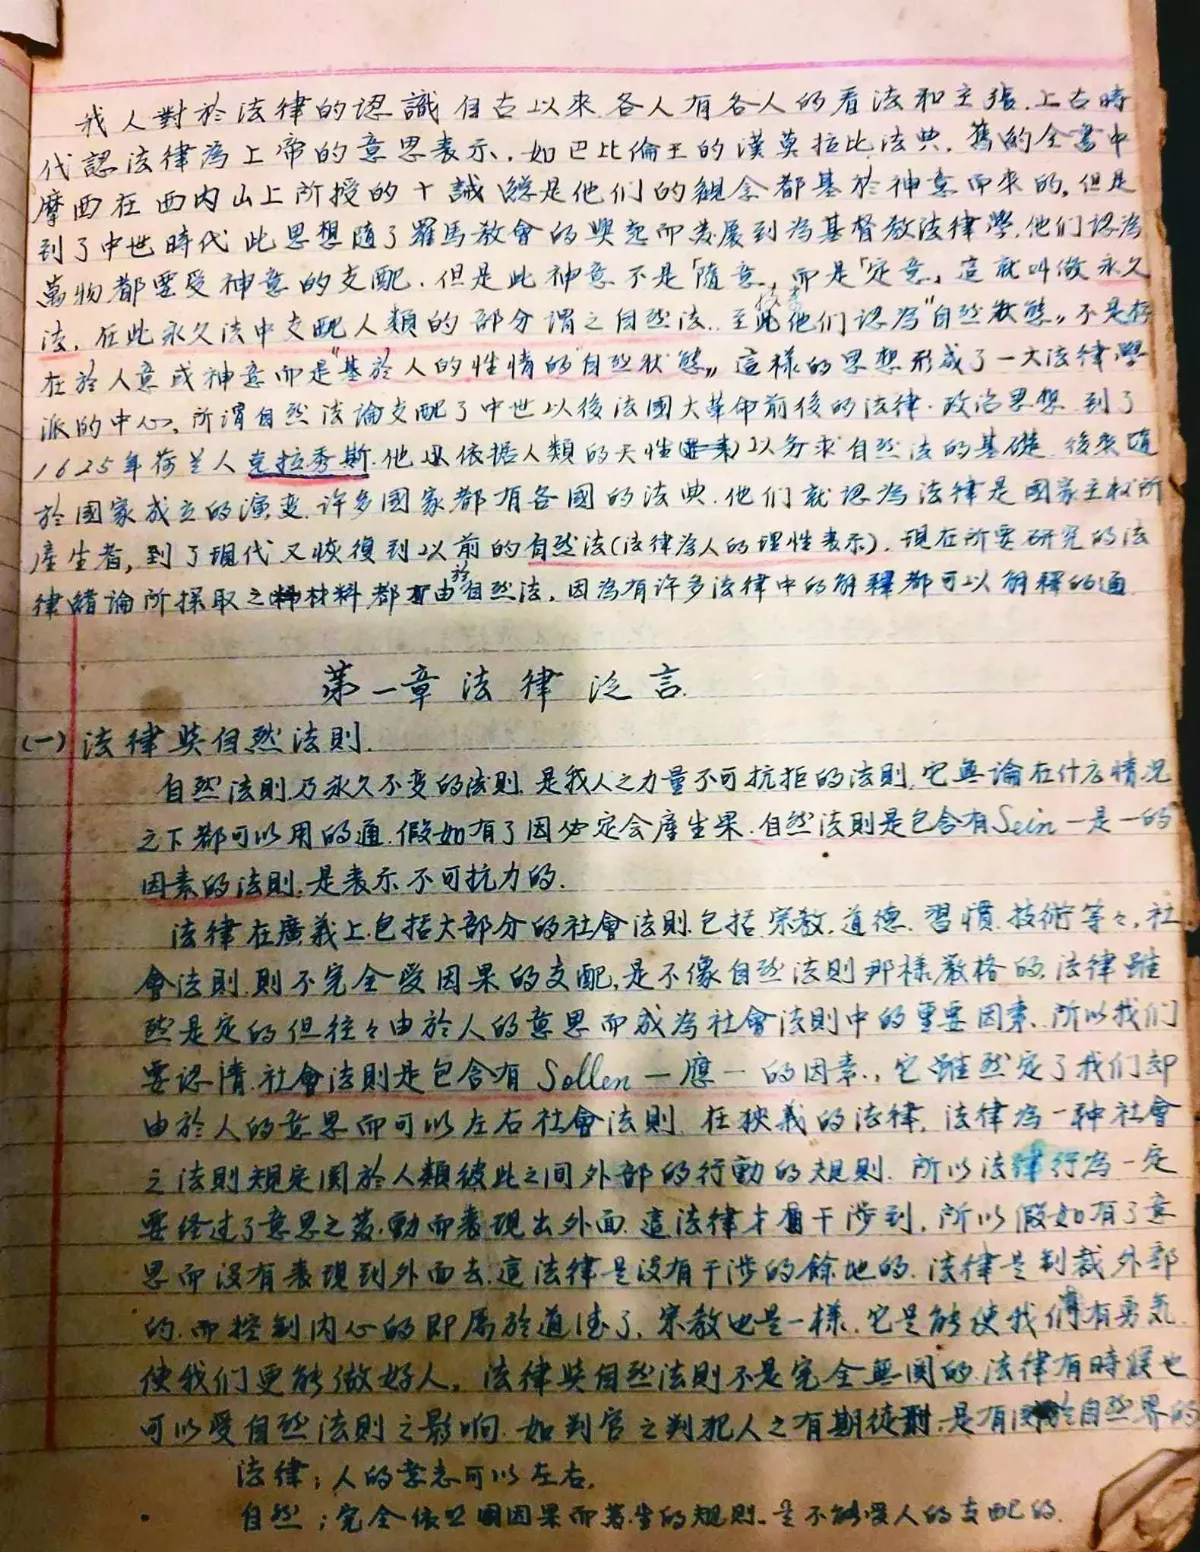 我人對於法律的認識自古以來各人有各人的看法和主張.上古時
代認法律為上帝的意思表示.如巴比倫王的漢莫拉比法典.舊的全書中
摩西在西內山上所授的十誡總是他们的觀念都基於神意而來的.但是
到了中世時代此思想隨了羅馬教會的興起而發展到為基督教法律學.他们認為
萬物都要受神意的支配.但是此神意不是「隨意」而是「定意」這就叫做永久
法.在此永久法中支配人類的部分謂之自然法.至此他们認為"自然狀態"不是存
在於人意或神意而是"基於人的性情的"自然狀態"這樣的思想形成了一大法律學
派的中心.所謂自然法論支配了中世以後法國大革命前後的法律.政治思想.到了
1625年荷兰人克拉秀斯.他以依据人類的天性以务求自然法的基礎.後來隨
於國家成立的演变.许多國家都有各國的法典.他们就認為法律是國家主权所
產生者,到了現代又恢復到以前的自然法(法律为人的理性表示).現在所要研究的法
律緒論所採取之材料都由於自然法,因為有许多法律中的解釋都可以解釋的通
第一章法律泛言.
(一)法律與自然法則.
自然法則乃永久不变的法則.是我人之力量不可抗拒的法則.它無論在什么情况
之下都可以用的通.假如有了因必定会產生果.自然法則是包含有Sein一是一的
因素的法則.是表示不可抗力的.
法律在廣義上包括大部分的社會法則.包括宗教.道德.習慣.技術等々,社
會法則.則不完全受因果的支配,是不像自然法則那樣嚴格的.法律雖
然是定的但往々由於人的意思而成為社會法則中的重要因素、所以我们
要認清社會法則是包含有Sollen一應一的因素.,它雖然定了我们却
由於人的意思而可以左右社會法則.在狹義的法律.法律為一种社會
之法則規定関於人類彼此之间外部的行動的規則.所以法律行為一定
要经过了意思之發動而表現出外面.這法律才有干涉到.所以假如有了意
思而沒有表現到外面去這法律是没有干涉的餘地的.法律是制裁外部
的.而控制内心的即属於道德了.宗教也是一樣.它是能使我们有勇氣.
使我们更能做好人.法律與自然法則不是完全無関的.法律有時候也
可以受自然法則之影响.如判官之判犯人之有期徒刑.是有自然界的
法律;人的意志可以左右.
自然;完全依照因果而發生的規則.是不能受人的支配的.